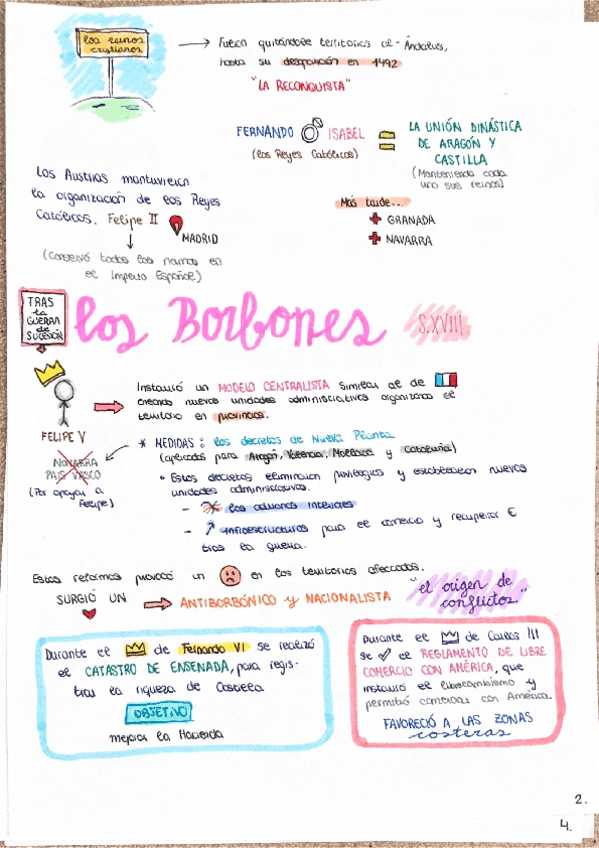 los reinos
cristianos
Fueron quitándole territorios al-Ándalus,
hasta su desaparición en 1492
"LA RECONQUISTA"
FERNANDO ISABEL
(los Reyes Católicos)
LA UNIÓN DINÁSTICA
DE ARAGÓN Y
CASTILLA
(Manteniendo cada
uno sus reinos)
Más tarde...
GRANADA
NAVARRA
Los Austrias mantuvieron
la organización de los Reyes
Católicos. Felipe II
MADRID
(Conservó todos los reinos en
el Imperio Español)
TRAS
la
GUERRA
de
SUCESIÓN
los Borbones
S.XVIII
FELIPE V
Instauró un MODELO CENTRALISTA similar al de
creando nuevas unidades administrativas organizando el
territorio en provincias.
* MEDIDAS: los decretos de Nueva Planta
(aplicados para Aragón, Valencia, Mallorca y Cataluña)
NAVARRA
PAÍS VASCO
(Por apoyar a
Felipe)
• Estos decretos eliminaron privilegios y establecieron nuevas
unidades administrativas.
- las aduanas interiores
- infraestructuras para el comercio y recuperar €
tras la guerra.
Estas reformas provocó un en los territorios afectados.
SURGIÓ UN
ANTIBORBÓNICO y NACIONALISTA
"el origen de
conflictos"
Durante el de Fernando VI se realizó
el CATASTRO DE ENSENADA, para regis-
trar la riqueza de Castilla
OBJETIVO
mejorar la Hacienda
Durante el de Carlos III
se el REGLAMENTO DE LIBRE
COMERCIO CON AMÉRICA, que
instauró el librecambismo y
permitió comerciar con América.
FAVORECIÓ A LAS ZONAS
costeras
2.
4.